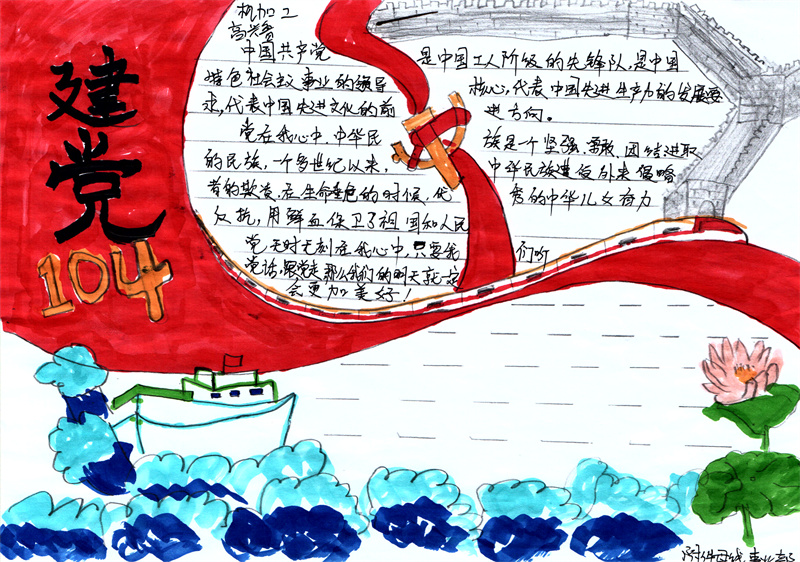 建党
104
机加工
高兴贵
中国共产党 是中国工人阶级的先锋队,是中国
特色社会主义事业的领导 核心,代表中国先进生产力的发展要
求,代表中国先进文化的前 进方向。
党在我心中,中华民 族是一个坚强、勇敢、团结进取
的民族,一个多世纪以来, 中华民族遭受外来侵略
者的欺凌,在生命垂危的时候,优 秀的中华儿女奋力
反抗,用鲜血保卫了祖国和人民
党无时无刻在我心中,只要我 们听
党话,跟党走那么我们的明天就一定
会更加美好!